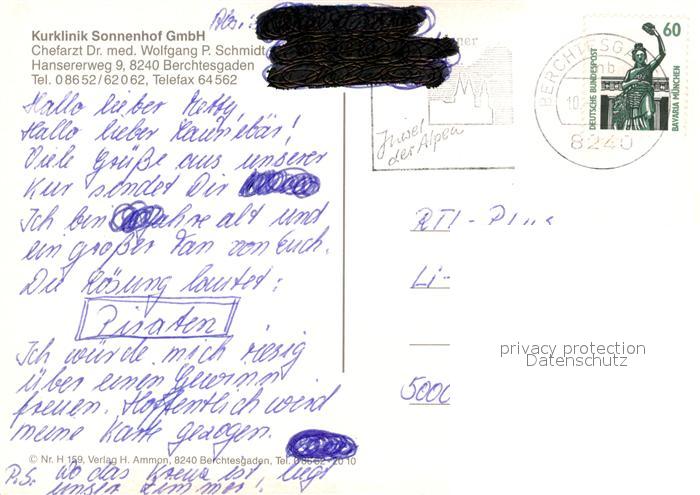 Kurklinik Sonnenhof GmbH
Chefarzt Dr. med. Wolfgang P. Schmidt
Hansererweg 9, 8240 Berchtesgaden
Tel. 08652/62062, Telefax 64562
Hallo lieber Metty,
Hallo lieber Känguebär!
Viele Grüße aus unserer
Kur sendet Dir
Ich bin Jahre alt und
ein großer Fan von Euch.
Die Lösung lautet:
Piraten
Ich würde mich riesig
über einen Gewinn
freuen. Hoffentlich wird
meine Karte gezogen.
© Nr. H 159, Verlag H. Ammon, 8240 Berchtesgaden, Tel. 08652-20 10
P.S. Wo das Kreuz ist, liegt
unser Zimmer!
Juwel
der Alpen
BERCHTESGA
mb
10.
8240
60
DEUTSCHE BUNDESPOST
BAVARIA MÜNCHEN
RTL-
Li-
5000
privacy protection
Datenschutz